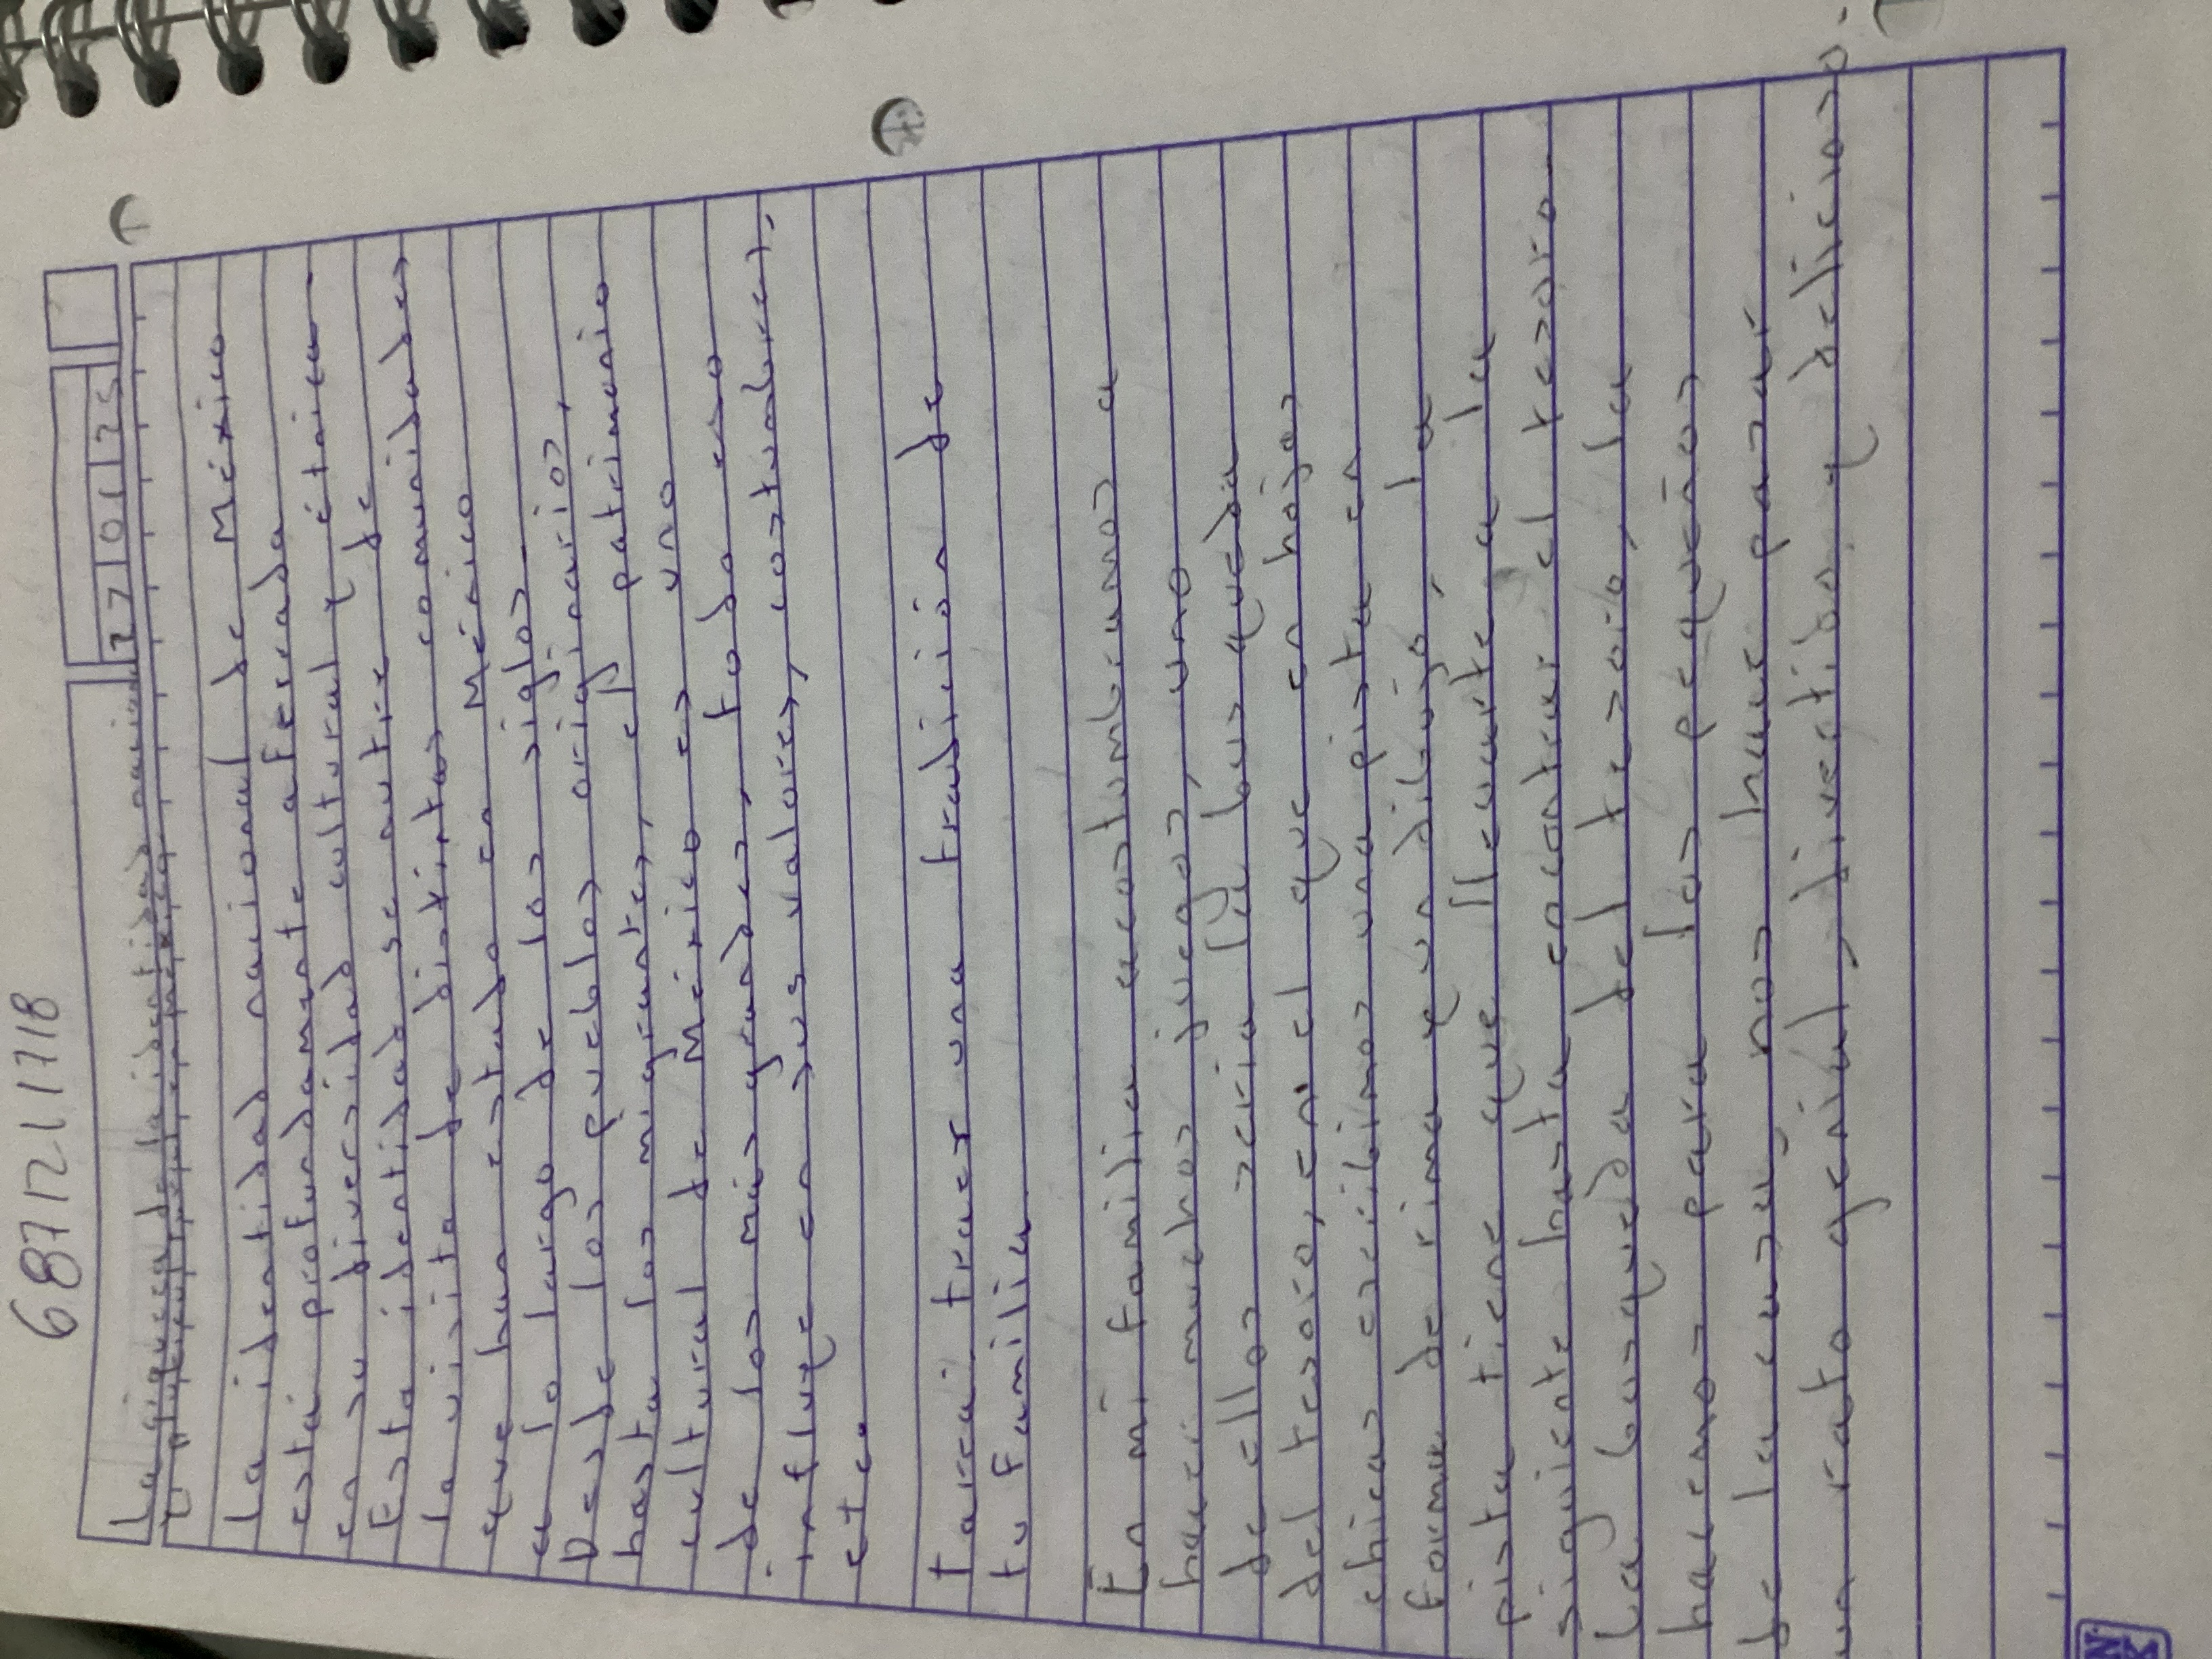 6871211718
27 01 25
La riqueza de la identidad nacional
La identidad nacional de México
está profundamente aferrada
en su diversidad cultural y étnica.
Esta identidad se nutre de
la visita de distintas comunidades
que han estado en México
a lo largo de los siglos.
Desde los pueblos originarios,
hasta los migrantes, el patrimonio
cultural de México es uno
de los más grandes, todo eso
influye en sus valores, costumbres,
etc.
tarea: traer una tradición de
tu familia
En mi familia acostumbramos a
hacer muchos juegos, uno
de ellos sería la busqueda
del tesoro, en el que en hojas
chicas escribimos una pista en
forma de rima y un dibujo, la
pista tiene que llevarte a la
siguiente hasta encontrar el tesoro.
La busqueda del tesoro, la
hacemos para los pequeños
de la casa y nos hace pasar
un rato genial, divertido y delicioso.